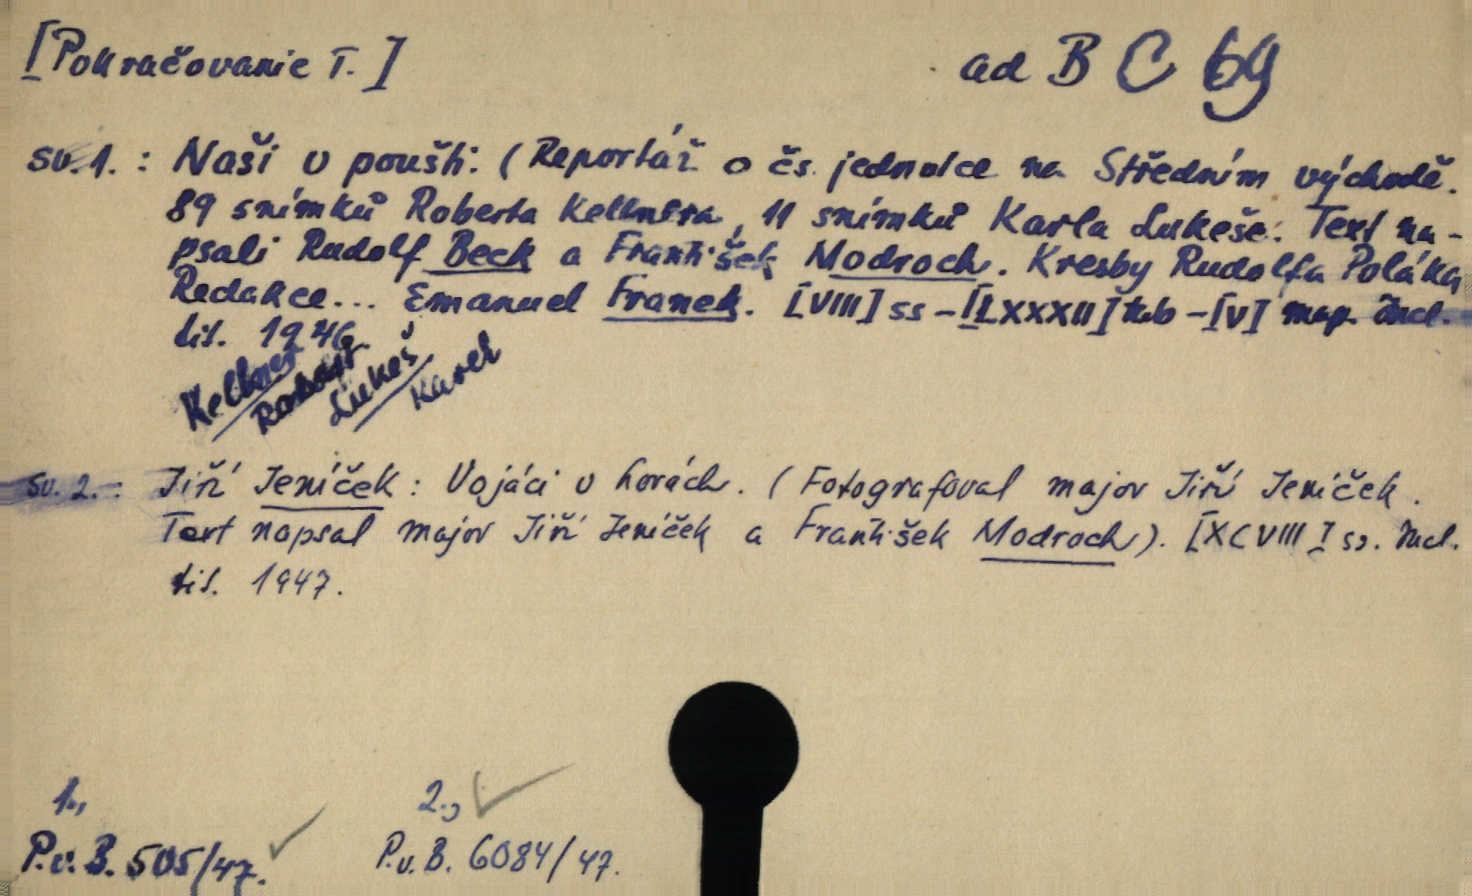 [Pokračovanie I.]
ad B C 69
sv. 1. : Naši v poušti. (Reportáž o čs. jednotce na Středním východě.
89 snímků Roberta Kellnera, 11 snímků Karla Lukeše. Text na-
psali Rudolf Beck a František Modroch. Kresby Rudolfa Poláka
Redakce... Emanuel Franek. [VIII] ss – [LXXXII] tab – [V] map. Incl.
tit. 1946.
Kellner
Robert
Lukeš
Karel
sv. 2. : Jiří Jeníček : Vojáci v horách. (Fotografoval major Jiří Jeníček.
Text napsal major Jiří Jeníček a František Modroch). [XCVIII] ss. Incl.
tit. 1947.
1.,
P.v.B. 505/47.
2.,
P.v.B. 6084/47.